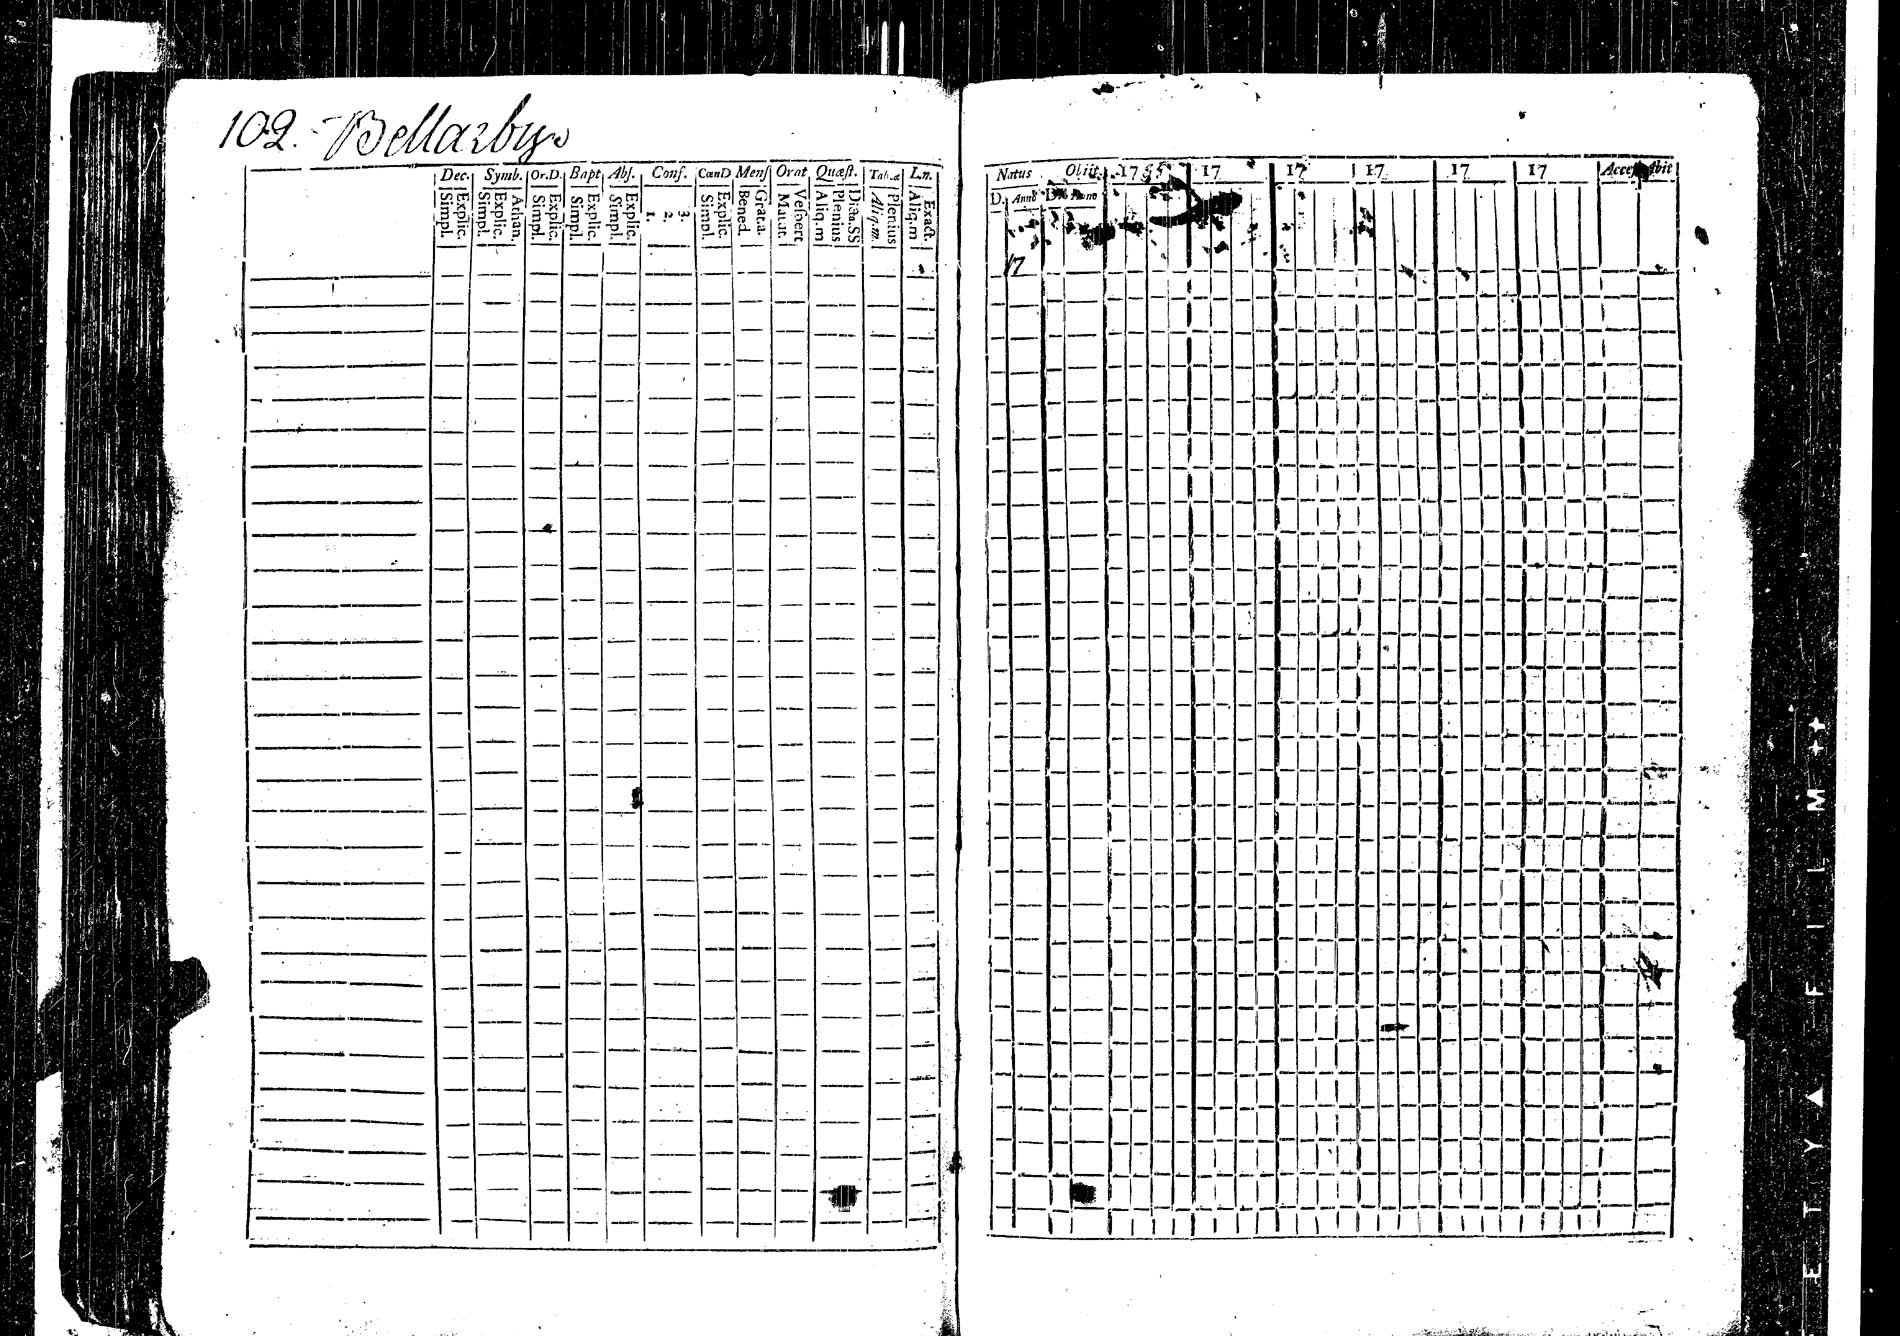 102. Bellarbyn
Dec. Symb. Or.D. Bapt Abs. Conf. CœnD Mens Orat Quæst. Tab.æ L.n.
Simpl. Explic. Simpl. Explic. Athan. Simpl. Explic. Simpl. Explic. Simpl. Explic. 1. 2. 3. Simpl. Explic. Bened. Grat.a. Matut. Vespert Aliq.m Plenius Dicta.SS Aliq.m. Plenius Aliq.m Exact.
Natus Obiit 1755 17 17 17 17 17 Access Abiit
D. Anno Anno
17
ETY ▲ FILM ++